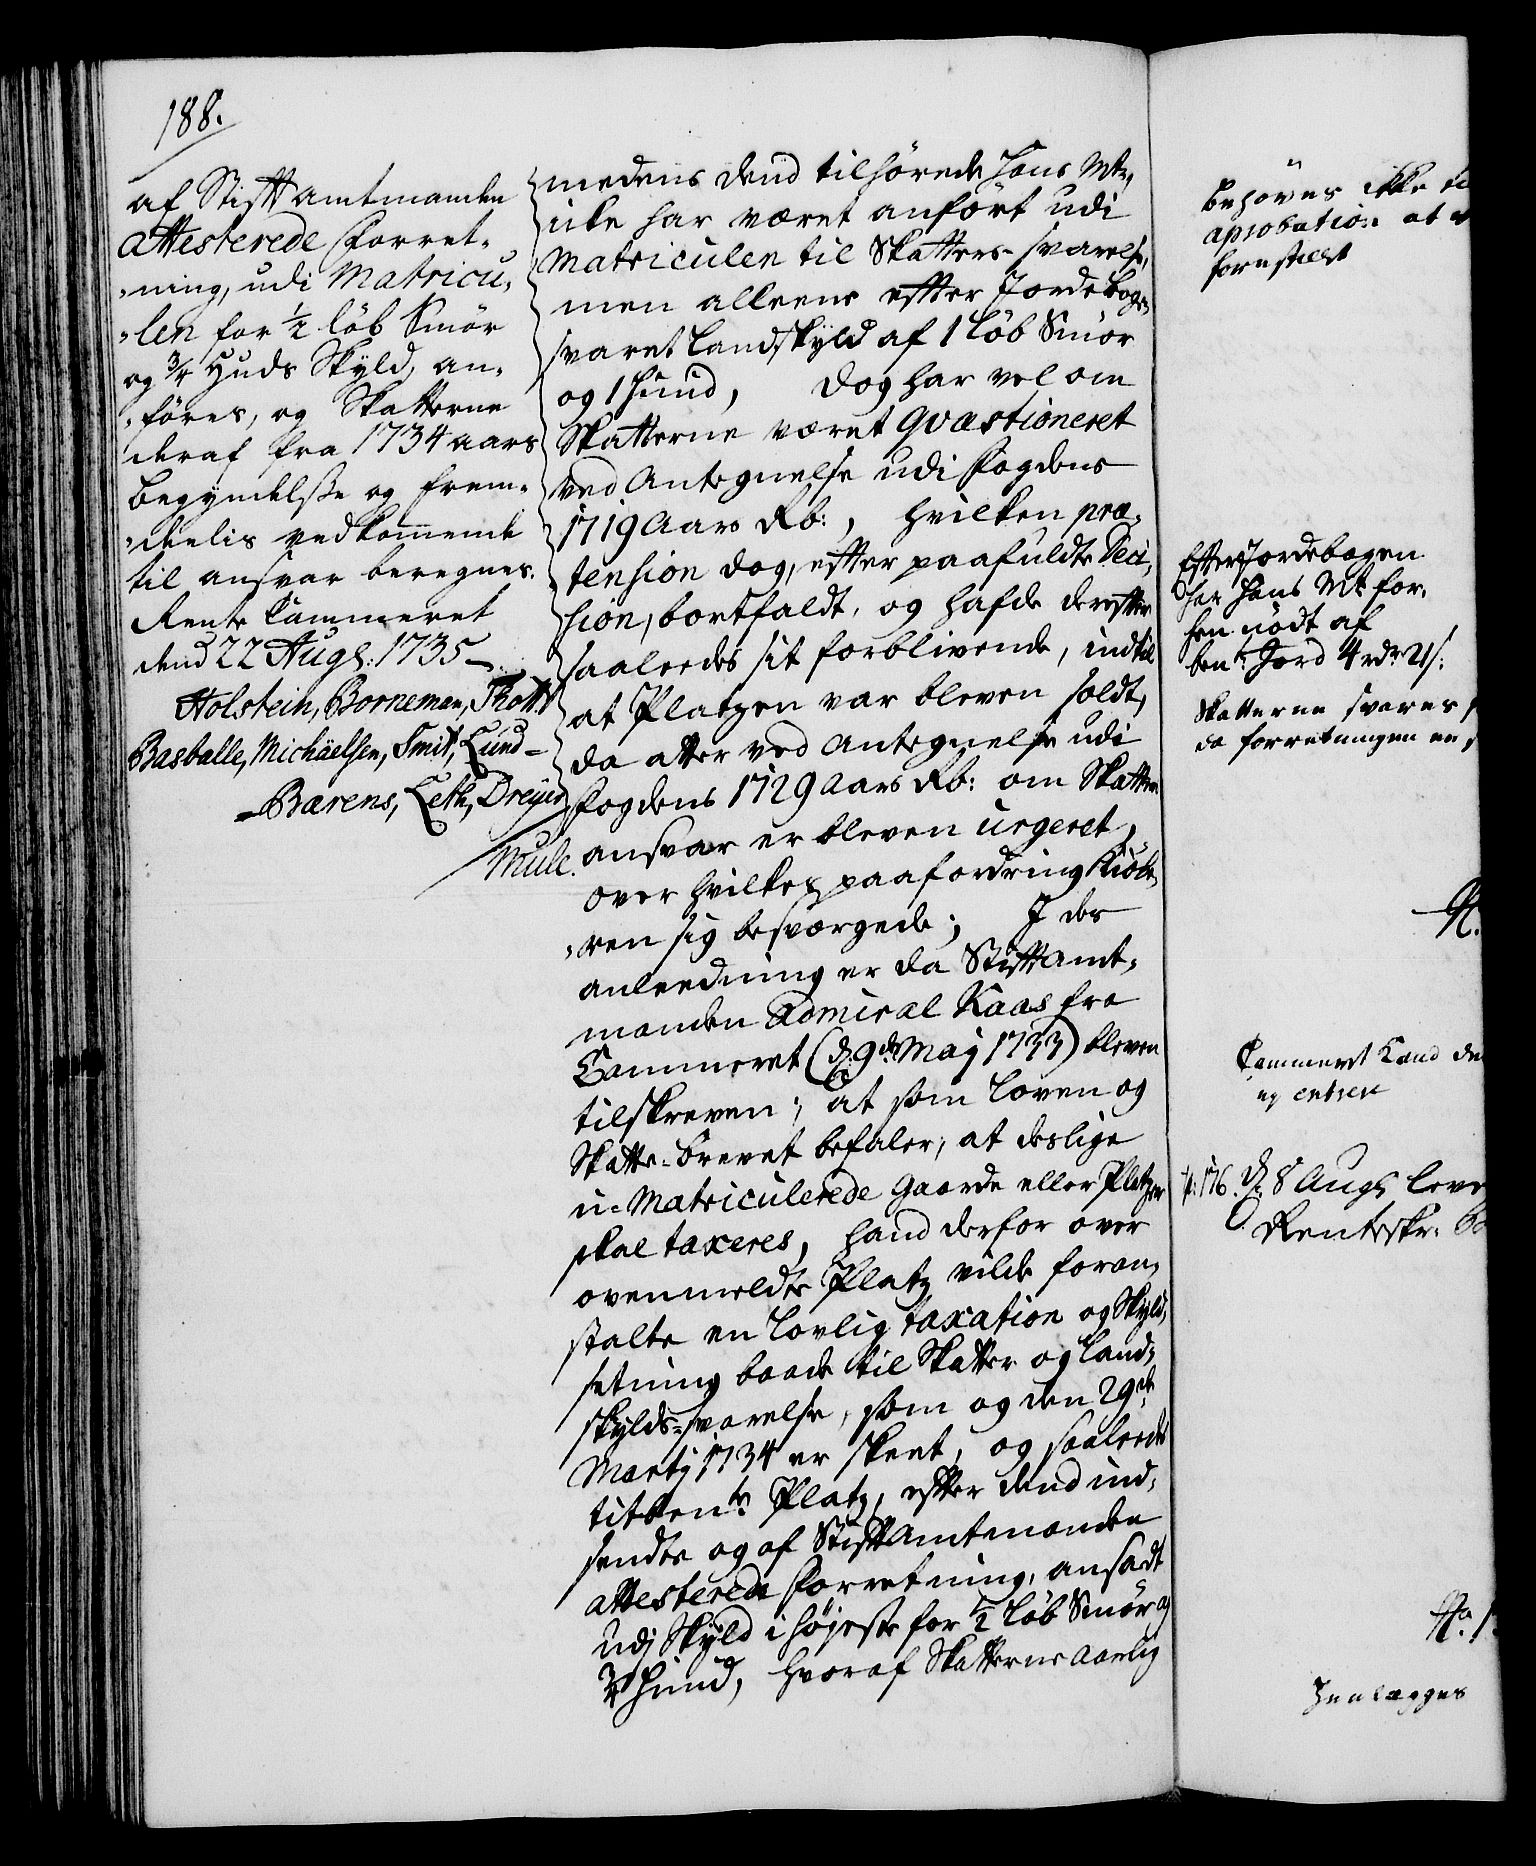 188.
af Stiftamtmanden
attesterede Forret-
-ning, udi Matricu-
-len for ½ löb Smör
og ¾ Huds Skyld, an-
-föres, og Skatterne
deraf fra 1734 aars
begyndelsse og frem-
-deelis vedkommende
til ansvar beregnes.
Rente Cammeret
dend 22 Augs: 1735.
Holstein, Borneman, Thott
Basballe, Michäelsen, Smit, Lund-
-Bærens, Leth, Dreyer
Mule.
medens dend tilhörede Hans Mtt,
icke har været anfört udi
Matriculen til Skatters svarelse,
men alleene efter Jordebogen
svaret Landskyld af 1 Löb Smör
og 1 Huud, dog har vel om
Skatterne været qvæstioneret
ved Antegnelse udi Fogdens
1719 Aars Rb:, hvilken præ-
tension dog, efter paafuldte Deci-
sion, bortfaldt, og hafde derefter
saaleedes sit forblivende, indtil
at Platzen var bleven soldt,
da atter ved Antegnelse udi
Fogdens 1729 Aars Rb: om Skatters
ansvar er bleven urgeret,
over hvilken paafordring Kiöbe-
-ren sig besværgede; J des
anleedning er da Stiftamt-
manden Admiral Kaas fra
Cammeret (d. 9de Maj 1733) bleven
tilskreven; at som Loven og
Skatte-brevet befaler, at deslige
u-Matriculerede Gaarde eller Platzer
skal taxeres, hand derfor over
ovenmeldte Platz vilde foran-
stalte en lovlig taxation og Skyld-
setning baade til Skatter og Land-
skylds-svarelse, som og den 29de
Martj 1734 er skeet, og saaleedes
titben.te Platz, efter dend ind-
sendte og af Stiftamtmanden
attesterede Forretning, ansadt
udj Skyld i höjeste for ½ Löb Smör og
¾ Huud, hvoraf Skatterne aarlig
behöves ikke ti
aprobation at
forestillet
Efter Jordebogen
har Hans Mt. for-
hen nödt af
ben.te Jord 4 rdr 21 s:
Skatterne svares
da forretningen er
Cammeret Kand de
ey
p: 176. d. 8 Augs leve
Renteskr:
Henlægges